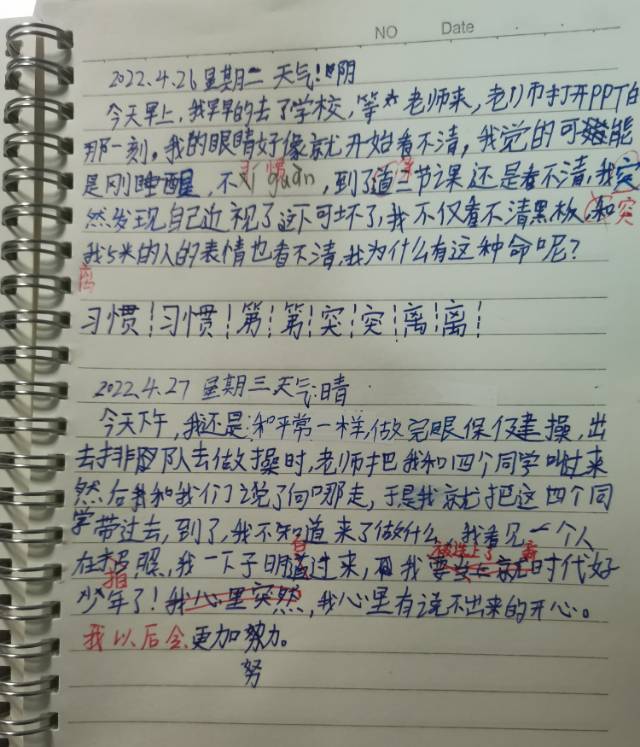 NO Date
2022.4.26 星期二 天气:阴
今天早上,我早早的去了学校,等 老师来,老师打开PPT的
那一刻,我的眼睛好像就开始看不清,我觉的可能
是刚睡醒,不习guàn惯,到了第二节课还是看不清,我突
然发现自己近视了这下可坏了,我不仅看不清黑板和突
我5米的人的表情也看不清,我为什么有这种命呢?
离
习惯¦习惯¦第¦第¦突¦突¦离¦离¦
2022.4.27 星期三天气:晴
今天下午,我还是和平常一样,做完眼保仅健操,出
去排 队去做操时,老师把我和四个同学叫过来
然后我和我们说了向哪走,于是我就把这四个同
学带过去,到了,我不知道来了做什么,我看见一个人
在拍照,我一下子明白过来,我被选上了新时代好
拍
少年了!我心里突然,我心里有说不出来的开心。
我以后会更加努力。
努